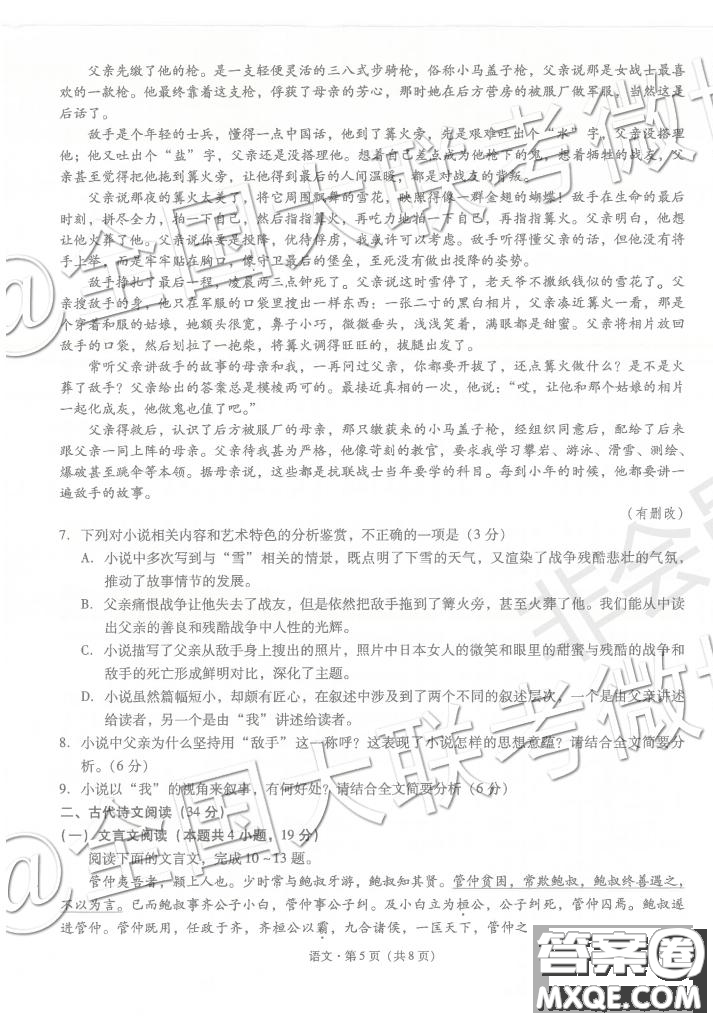 父亲先缴了他的枪。是一支轻便灵活的三八式步骑枪，俗称小马盖子枪，父亲说那是女战士最喜
欢的一款枪。他最终靠着这支枪，俘获了母亲的芳心，那时她在后方营房的被服厂做军服，当然这是
后话了。
敌手是个年轻的士兵，懂得一点中国话，他到了篝火旁，先是艰难吐出个“水”字，父亲没搭理
他；他又吐出个“盐”字，父亲还是没搭理他。想着自己差点成为他枪下的鬼，想着牺牲的战友，父
亲甚至觉得把他拖到篝火旁，让他得到最后的人间温暖，都是对战友的背叛。
父亲说那夜的篝火太美了，将它周围飘舞的雪花，映照得像一群金翅的蝴蝶！敌手在生命的最后
时刻，拼尽全力，拍一下自己，然后指指篝火，再吃力地拍一下自己，再指指篝火。父亲明白，他想
让他火葬了他。父亲说你要是投降，优待俘虏，我或许可以考虑。敌手听得懂父亲的话，但他没有将
手上举，而是牢牢贴在胸口，像守卫最后的堡垒，至死没有做出投降的姿势。
敌手挣扎了最后一程，凌晨两三点钟死了。父亲说这时雪停了，老天爷不撒纸钱似的雪花了。父
亲搜敌手的身，他只在军服的口袋里搜出一样东西：一张二寸的黑白相片，父亲凑近篝火一看，那是
个穿着和服的姑娘，她额头很宽，鼻子小巧，微微垂头，浅浅笑着，满眼都是甜蜜。父亲将相片放回
敌手的口袋，然后划拉了一抱柴，将篝火调得旺旺的，拔腿离开了。
常听父亲讲敌手的故事的母亲和我，一再问过父亲，你都要开拔了，还点篝火做什么？是不是火
葬了敌手？父亲给出的答案总是模棱两可的。最接近真相的一次，他说：“哎，让他和那个姑娘的相片
一起化成灰，他做鬼也值了吧。”
父亲得救后，认识了后方被服厂的母亲，那只缴获来的小马盖子枪，经组织同意后，配给了后来
跟父亲一同上阵的母亲。父亲待我甚为严格，他像苛刻的教官，要求我学习攀岩、游泳、滑雪、测绘、
爆破甚至跳伞等本领。据母亲说，这些都是抗联战士当年要学的科目。每到小年的时候，他都要讲一
遍敌手的故事。
（有删改）
7．下列对小说相关内容和艺术特色的分析鉴赏，不正确的一项是（3 分）
A．小说中多次写到与“雪”相关的情景，既点明了下雪的天气，又渲染了战争残酷悲壮的气氛，
推动了故事情节的发展。
B．父亲痛恨战争让他失去了战友，但是依然把敌手拖到了篝火旁，甚至火葬了他。我们能从中读
出父亲的善良和残酷战争中人性的光辉。
C．小说描写了父亲从敌手身上搜出的照片，照片中日本女人的微笑和眼里的甜蜜与残酷的战争和
敌手的死亡形成鲜明对比，深化了主题。
D．小说虽然篇幅短小，却颇有匠心，在叙述中涉及到了两个不同的叙述层次，一个是由父亲讲述
给读者，另一个是由“我”讲述给读者。
8．小说中父亲为什么坚持用“敌手”这一称呼？这表现了小说怎样的思想意蕴？请结合全文简要分
析。（6 分）
9．小说以“我”的视角来叙事，有何好处？请结合全文简要分析（6 分）
二、古代诗文阅读（34 分）
（一）文言文阅读（本题共 4 小题，19 分）
阅读下面的文言文，完成 10～13 题。
管仲夷吾者，颍上人也。少时常与鲍叔牙游，鲍叔知其贤。管仲贫困，常欺鲍叔，鲍叔终善遇之，
不以为言。已而鲍叔事齐公子小白，管仲事公子纠。及小白立为桓公，公子纠死，管仲囚焉。鲍叔遂
进管仲。管仲既用，任政于齐，齐桓公以霸，九合诸侯，一匡天下，管仲之
语文·第 5 页（共 8 页）
@全国大联考微博
@全国大联考微博
非会员
答案圈
MXQE.COM